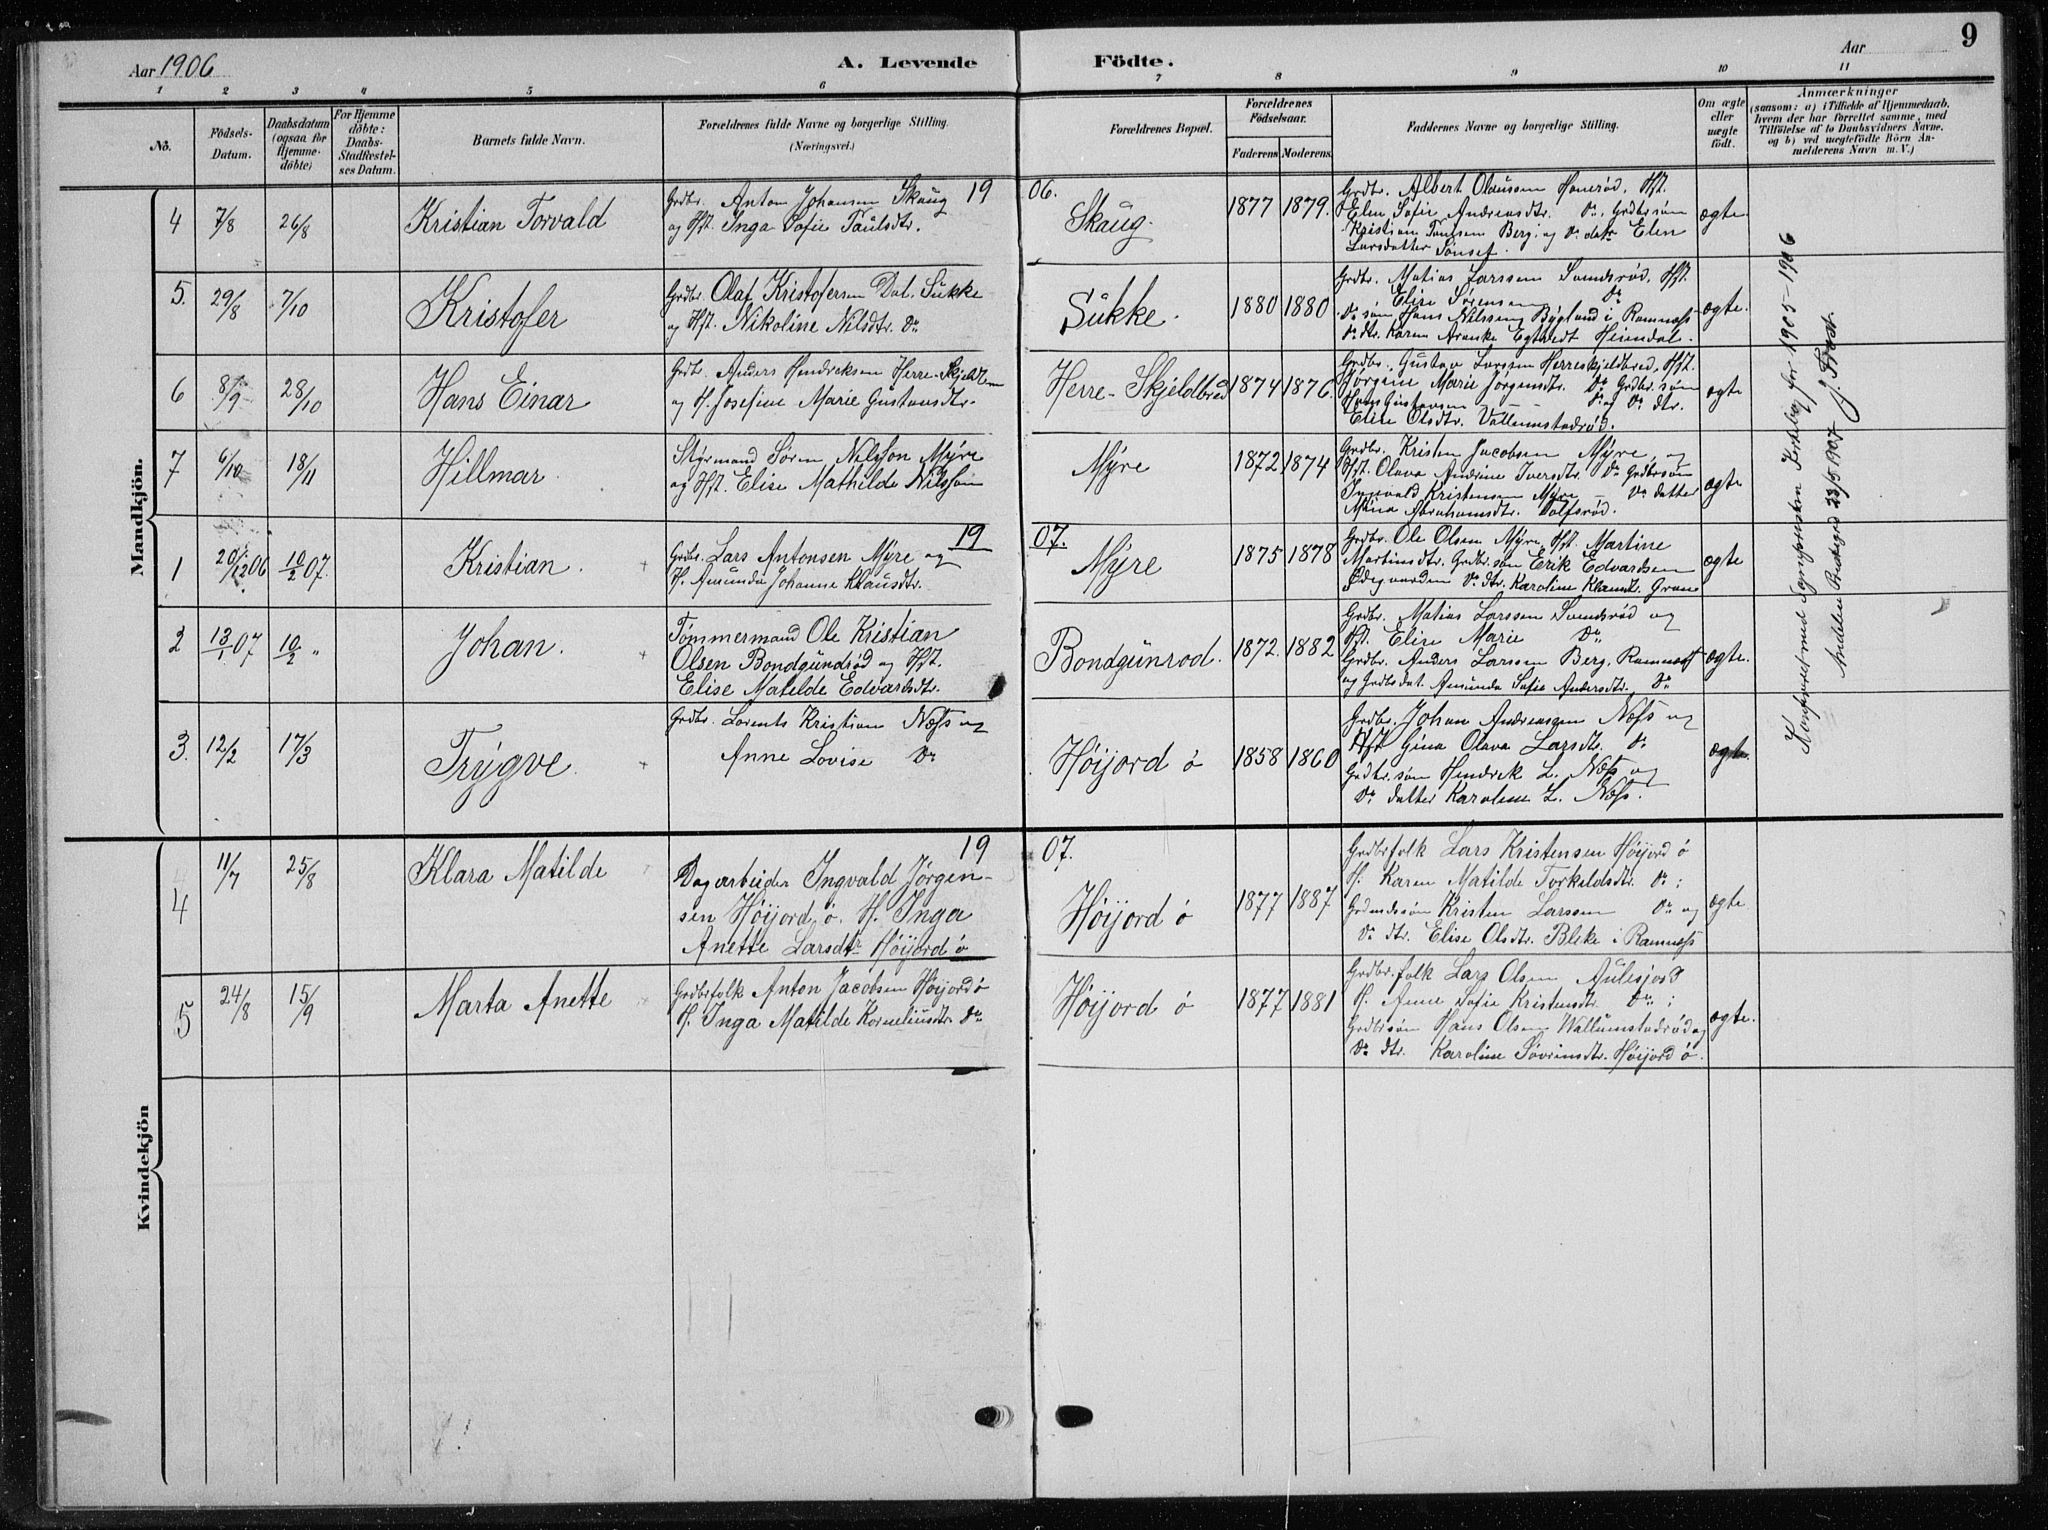 Aar 1906
A. Levende
Födte.
Aar
9
1 2 3 4 5 6 7 8 9 10 11
No.
Födsels-
Datum.
Daabsdatum
(ogsaa for
Hjemme-
döbte)
For Hjemme
döbte:
Daabs-
Stadfæstel-
ses Datum.
Barnets fulde Navn.
Forældrenes fulde Navne og borgerlige Stilling.
(Næringsvei.)
Forældrenes Bopæl.
Forældrenes
Födselsaar.
Faderens Moderens.
Faddernes Navne og borgerlige Stilling.
Om ægte
eller
uægte
födt.
Anmærkninger
(saasom: a) i Tilfælde af Hjemmedaab,
hvem der har forrettet samme, med
Tilföielse af to Daabsvidners Navne.
og b) ved uægtefödte Börn An-
melderens Navn m. V.)
Mandkjön.
19 06.
4 7/8 26/8 Kristian Torvald
Grdbr. Anton Johansen Skaug
og Hst. Inga Sofie Paulsdtr.
Skaug. 1877 1879.
Grdbr. Albert Olaussen Hanerød, Hst.
Elen Sofie Andreasdtr. Do. Grdbrsøn
Kristian Paulsen Berg og Do datr Elen
Larsdatter Sønset.
ægte.
5. 29/8 7/10 Kristofer
Grdbr. Olaf Kristofersen Dal. Sukke
og Hst. Nikoline Nilsdtr. Do
Sukke. 1880 1880.
Grdbr. Matias Larssen Sundsrød, Hst.
Elise Sørensen Do
Do søn Hans Nilssen Bygland i Ramnæss
Do dtr. Karen Heimdal.
ægte.
6 8/9 28/10 Hans Einar
Grdbr. Anders Hendriksen Herre-Skjeldbrem
og H. Josefine Marie Gustavsdtr.
Herre-Skjeldbred 1874 1876.
Grdbr. Gustav Larsen Herreskjeldbred, Hst.
Jørgine Marie Jørgensdtr. Do Grdbr.søn
Hans Gustavsen Do og Do dtr.
Elise Olsdtr. Vallumstadrød.
ægte
7 6/10 18/11 Hillmar.
Styrmand Søren Nilsson Myre
og Hst. Elise Mathilde Nilsson
Myre 1872 1874
Grdbr. Kristen Jacobsen Myre og
Hst. Olava Andrine Iversdtr. Do Grdbrsøn
Kristensen Myre – Do datter
Mina Abrahamsdtr. Dolfsrød.
ægte
19 07.
1 20/12 06 10/2 07. Kristian.
Grdbr. Lars Antonsen Myre og
H. Amunda Johanne Klausdtr.
Myre 1875 1878
Grdbr. Ole Olsen Myre, Hst. Martine
Martinsdtr. Grdbr.søn Erik Edvardsen
Do dtr. Karoline Gran
ægte
2 13/1 07 10/2 " Johan.
Tømmermand Ole Kristian
Olsen Bondgundrød og Hst.
Elise Matilde Edvardsdtr.
Bondgunrod. 1872. 1882
Grdbr. Matias Larssen Sundsrød og
Hst. Elise Marie Do
Grdbr. Anders Larssen Berg. Ramnæss
og Grdbsdat. Amunda Sofie Andersdtr. Do
ægte.
3. 12/2 17/3 Trygve.
Grdbr. Lorents Kristian Næss og
Anne Lovise Do
Høijord ö 1858 1860
Grdbr. Johan Andreasen Næss og
Hst Gina Olava Larsdtr. Do
Grdbr.søn Hendrik L. Næss og
Do datter Karoline L. Næss.
ægte.
Konfereret med Segneprestens Kirkebog for 1905–1906
Andebu Prestegrd 23/5 1907
Kvindekjön
19 07.
4 11/7 25/8 Klara Matilde
Dagarbeider Ingvald Jørgen-
sen Høijord ö. H. Inga
Anette Larsdtr Høijord ö
Høijord ö 1877 1887
Grdbrfolk Lars Kristensen Høijord ö
H. Karen Matilde Torkildsdtr. Do;
Grdmdssøn Kristen Larssen Do og
Do dtr. Elise Olsdtr. Bleke i Ramnæss
ægte
5 24/8 15/9 Marta Anette
Grdbrfolk Anton Jacobsen Høijord ö
H. Inga Matilde Korneliusdtr. Do
Høijord ö 1877 1881
Grdbr.folk Lars Olsen Aulesjord
H. Anne Sofie Kristensdtr. Do;
Grdbrsøn Hans Olsen Wallumstadrød og
Do dtr. Karoline Søvrinsdtr. Høijord ö.
ægte.